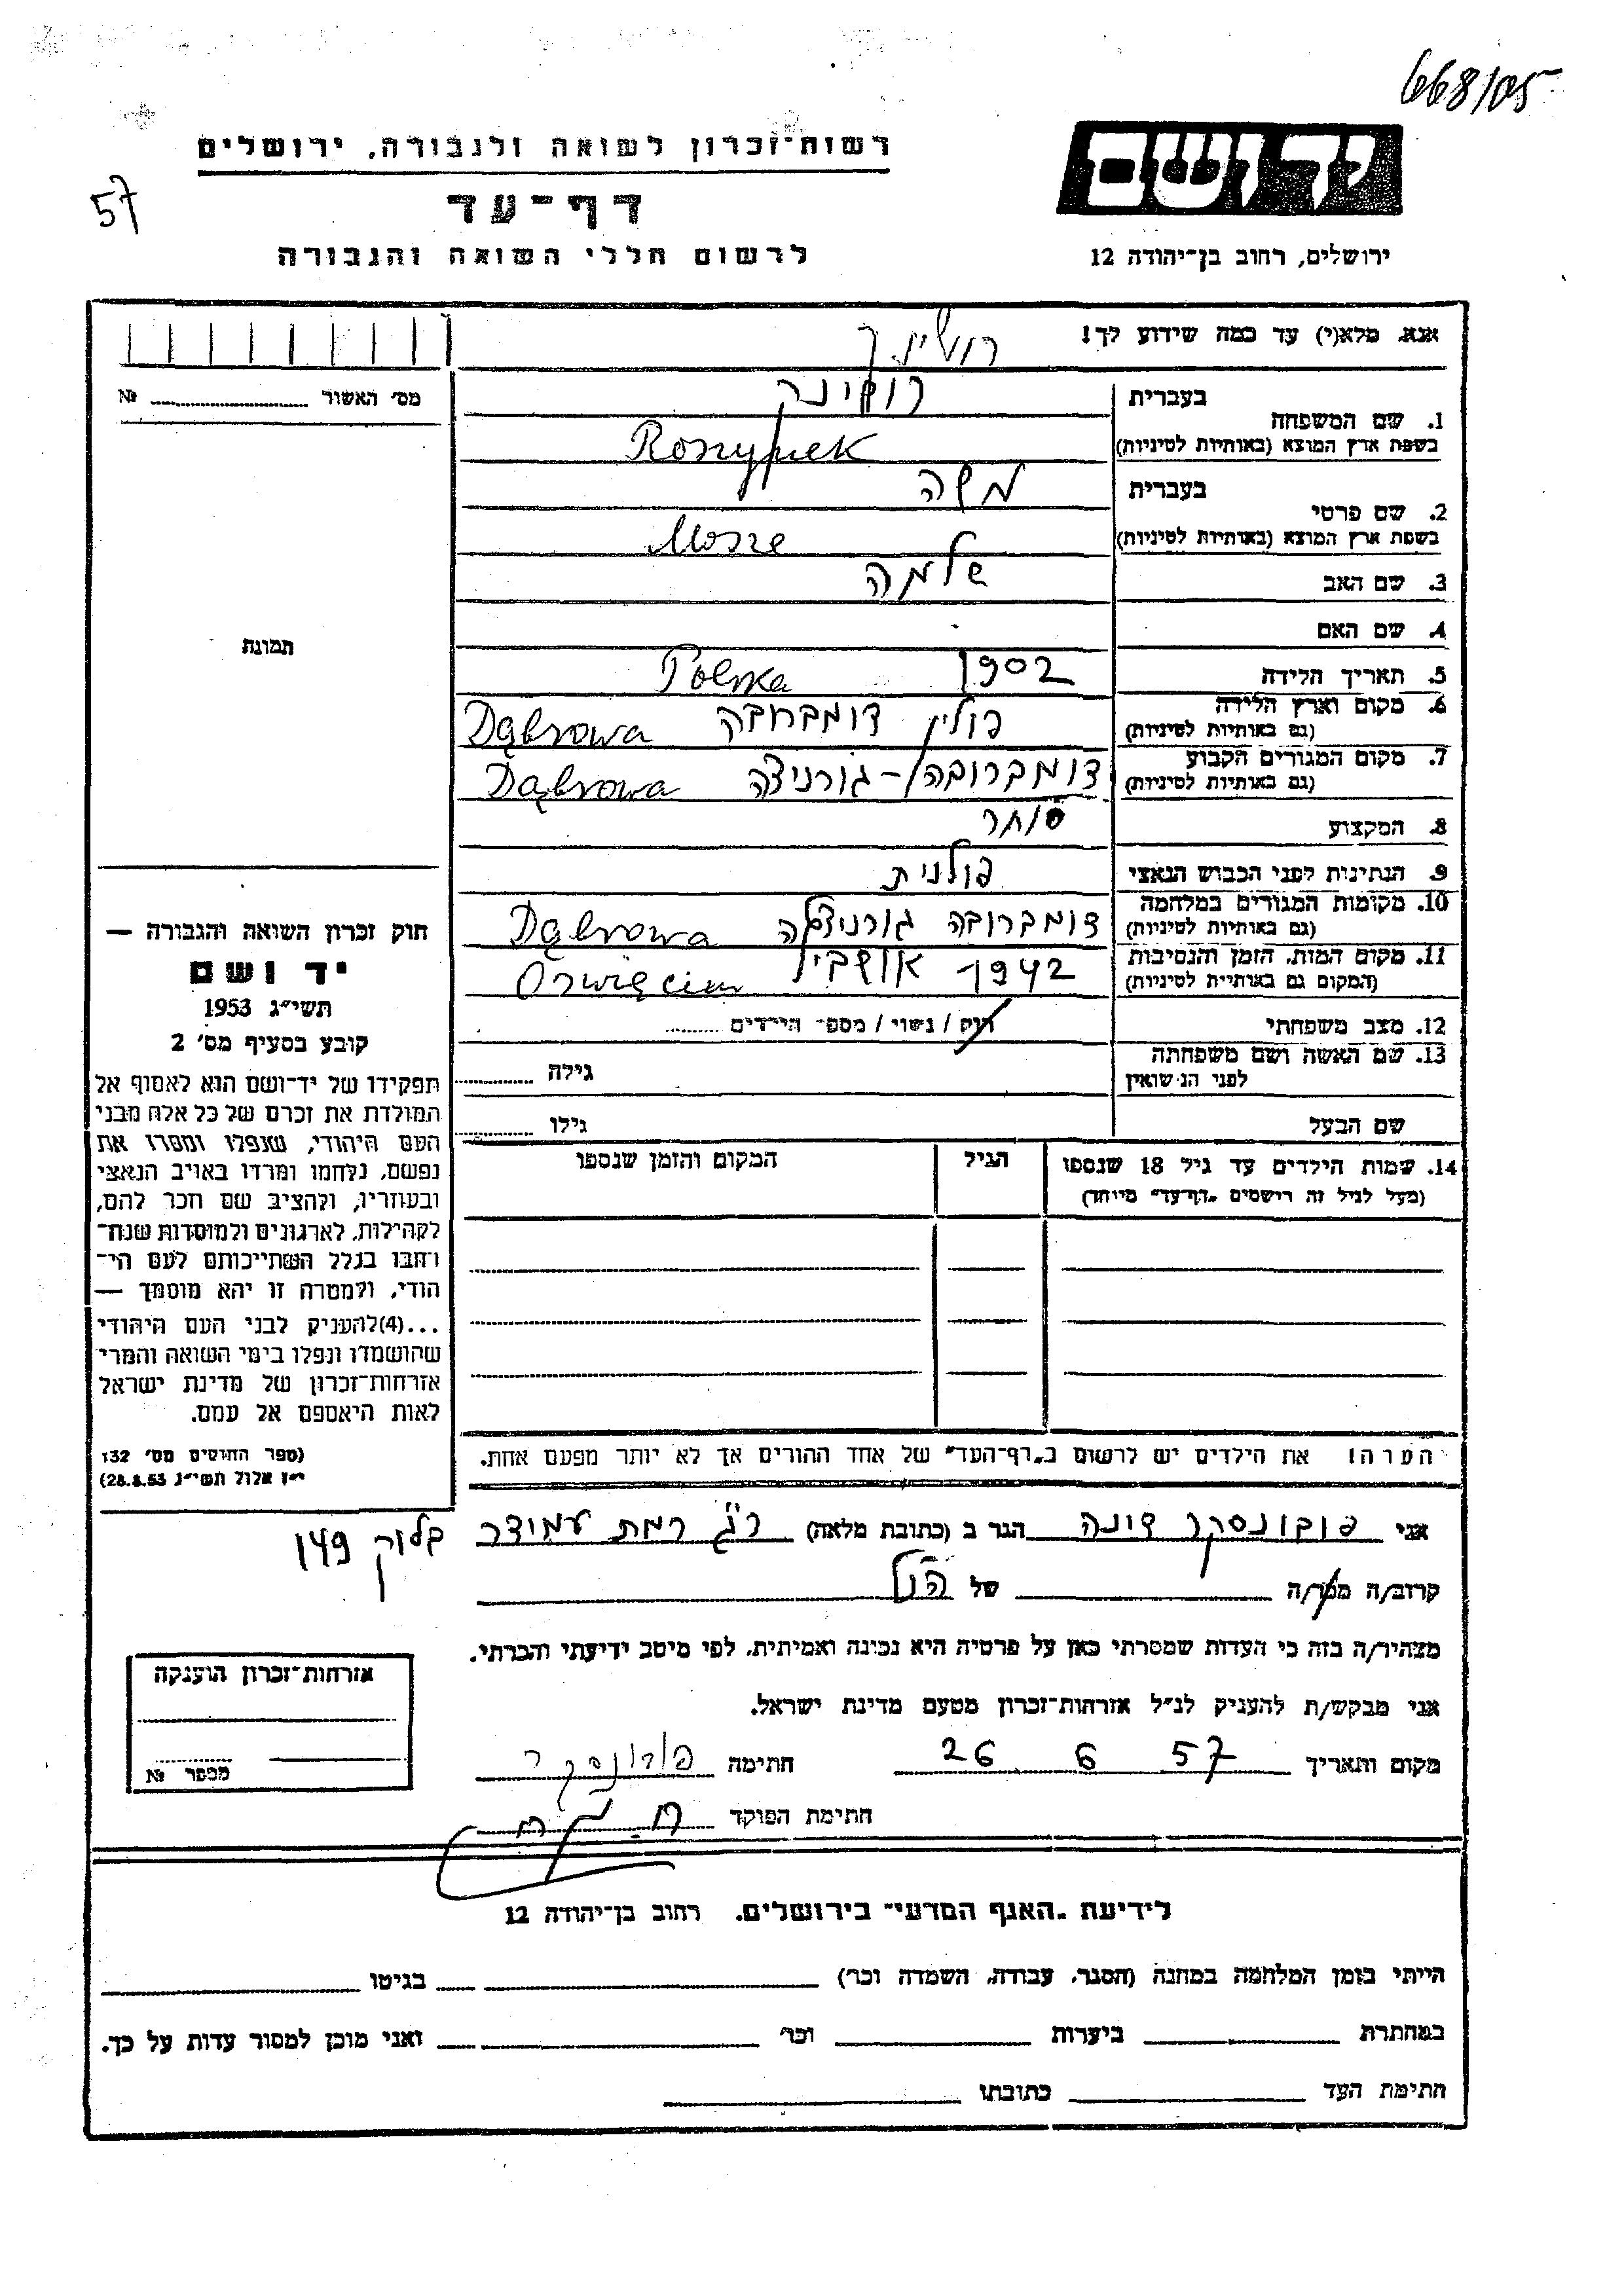 668/05
רשות־זכרון לשואה ולגבורה, ירושלים
יד ושם
57
דף־עד
לרשום חללי השואה והגבורה
ירושלים, רחוב בן־יהודה 12
אנא, מלא(י) עד כמה שידוע לך!
רוז'ינק
מס' האשור № 
1. שם המשפחה
בעברית
בשפת ארץ המוצא (באותיות לטיניות)
Roszynek
2. שם פרטי
בעברית משה
בשפת ארץ המוצא (באותיות לטיניות) Mosze
3. שם האב שלמה
4. שם האם
תמונה
5. תאריך הלידה 1902 Polska
6. מקום וארץ הלידה פולין דומברובה Dąbrowa
(גם באותיות לטיניות)
7. מקום המגורים הקבוע דומברובה-גורניצה Dąbrowa
(גם באותיות לטיניות)
8. המקצוע סוחר
9. הנתינות לפני הכבוש הנאצי פולנית
10. מקומות המגורים במלחמה דומברובה גורניצה Dąbrowa
(גם באותיות לטיניות)
11. מקום המות, הזמן והנסיבות 1942 Oświęcim
(המקום גם באותיות לטיניות)
12. מצב משפחתי רוק / נשוי / מספר הילדים
13. שם האשה ושם משפחתה
לפני הנישואין
גילה
שם הבעל גילו
14. שמות הילדים עד גיל 18 שנספו הגיל המקום והזמן שנספו
(מעל לגיל זה רושמים "דף־עד" מיוחד)
הערה! את הילדים יש לרשום ב"דף־העד" של אחד ההורים אך לא יותר מפעם אחת.
חוק זכרון השואה והגבורה —
יד ושם
תשי"ג 1953
קובע בסעיף מס' 2
תפקידו של יד־ושם הוא לאסוף אל
המולדת את זכרם של כל אלה מבני
העם היהודי, שנפלו ומסרו את
נפשם, נלחמו ומרדו באויב הנאצי
ובעוזריו, ולהציב שם וזכר להם,
לקהילות, לארגונים ולמוסדות שנח־
רחבו בגלל השתייכותם לעם הי־
הודי, ולמטרה זו יהא מוסמך —
...(4) להעניק לבני העם היהודי
שהושמדו ונפלו בימי השואה והמרי
אזרחות־זכרון של מדינת ישראל
לאות היאספם אל עמם.
(ספר החוקים מס' 132
י"ז אלול תשי"ג 28.8.53)
אני דינה הגר ב (כתובת מלאה) ר"ג רמת עמידר בלוק 149
קרוב/ה מכר/ה של הנ"ל
מצהיר/ה בזה כי העדות שמסרתי כאן על פרטיה היא נכונה ואמיתית, לפי מיטב ידיעתי והכרתי.
אני מבקש/ת להעניק לנ"ל אזרחות־זכרון מטעם מדינת ישראל.
מקום ותאריך 26 6 57 חתימה
חתימת הפוקד
אזרחות־זכרון הוענקה
מספר №
לידיעת "האגף המדעי" בירושלים, רחוב בן־יהודה 12
הייתי בזמן המלחמה במחנה (הסגר, עבודה, השמדה וכו') בגיטו
במחתרת ביערות וכו' ואני מוכן למסור עדות על כך.
חתימת העד כתובתו